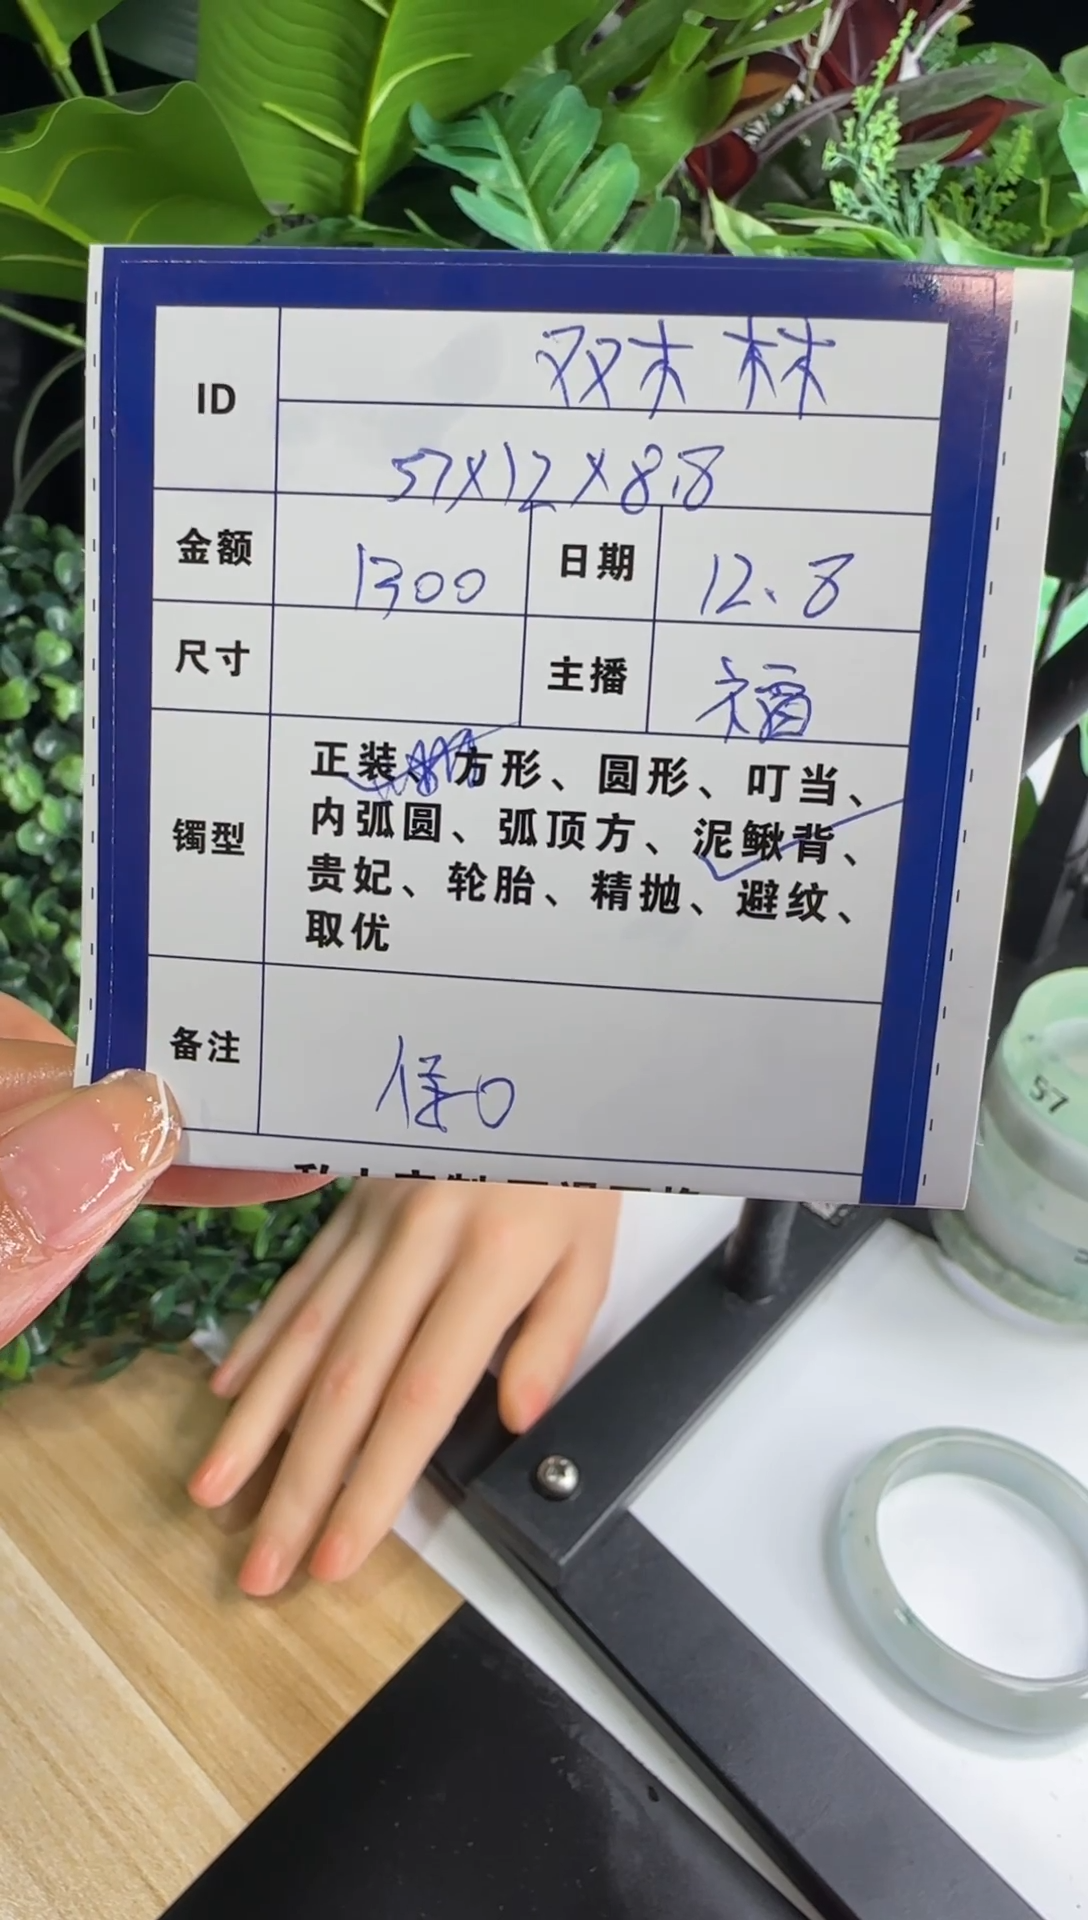 ID
双木 林
57×12×8.8
金额
1300
日期
12.8
尺寸
主播
福
镯型
正装、方形、圆形、叮当、
内弧圆、弧顶方、泥鳅背、
贵妃、轮胎、精抛、避纹、
取优
备注
保口
57